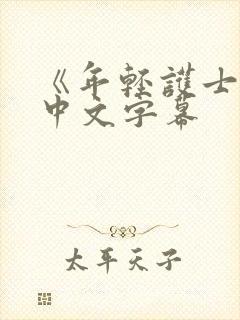 《年轻護士
中文字幕
太平天子